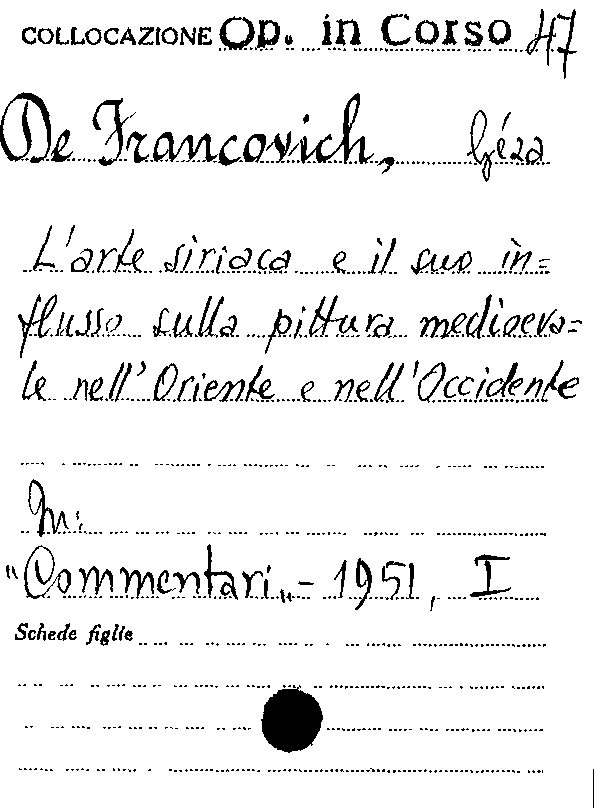 COLLOCAZIONE Op. in Corso 47
De Francovich, Géza
L'arte siriaca e il suo in=
flusso sulla pittura medioeva=
le nell'Oriente e nell'Occidente
In:
"Commentari„ - 1951, I
Schede figlie